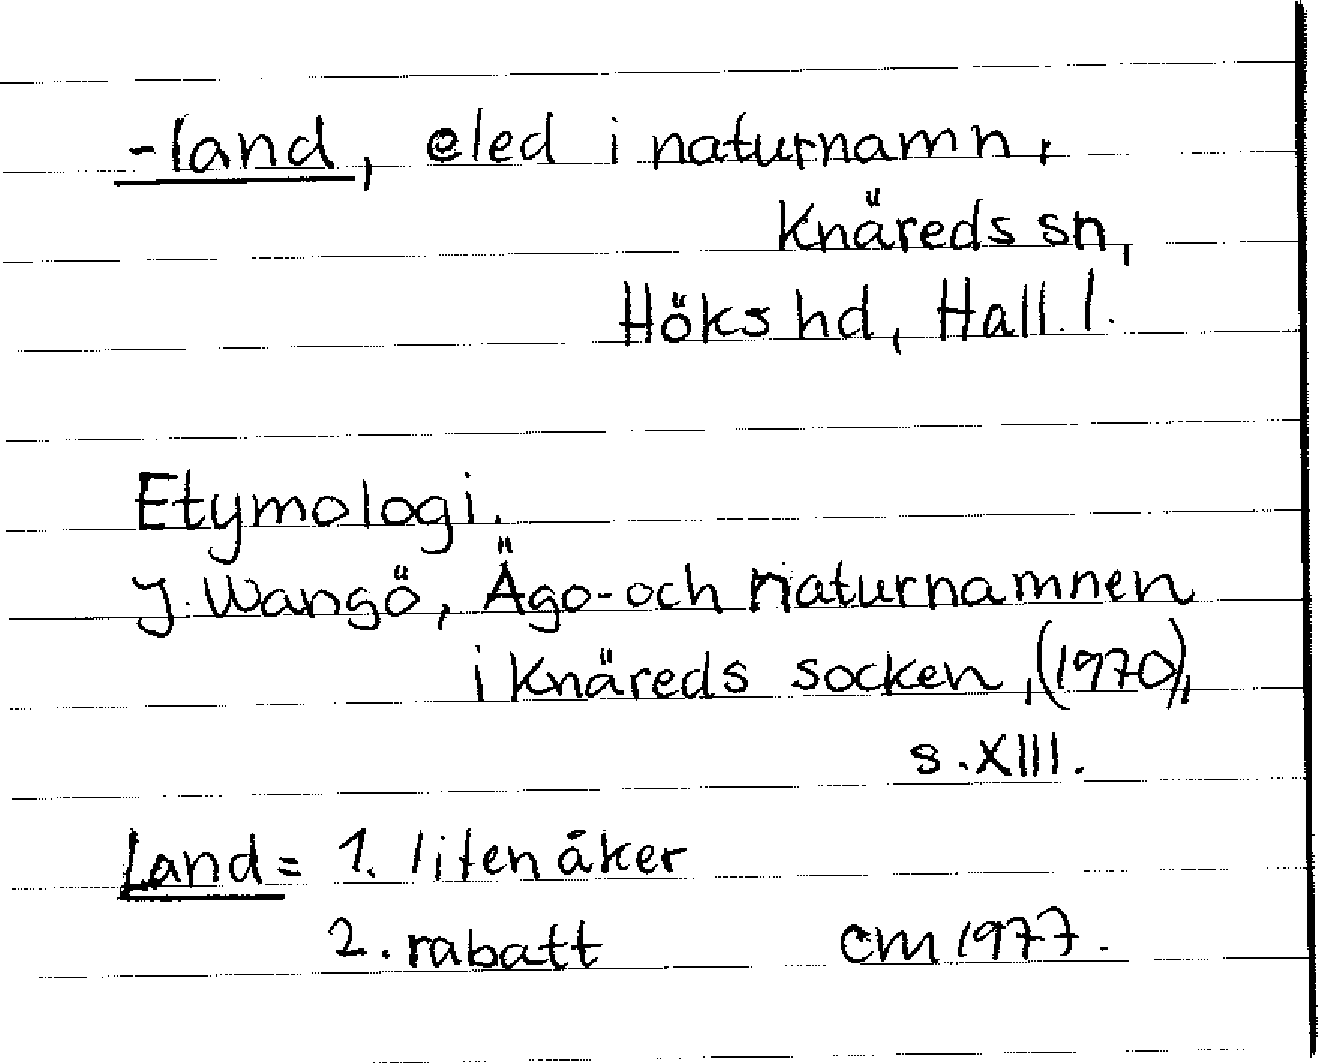 -land, eled i naturnamn,
Knäreds sn,
Höks hd, Hall. l.
Etymologi.
J. Wangö, Ägo- och naturnamnen
i Knäreds socken, (1970),
s. XIII.
Land = 1. liten åker
2. rabatt cm 1977.